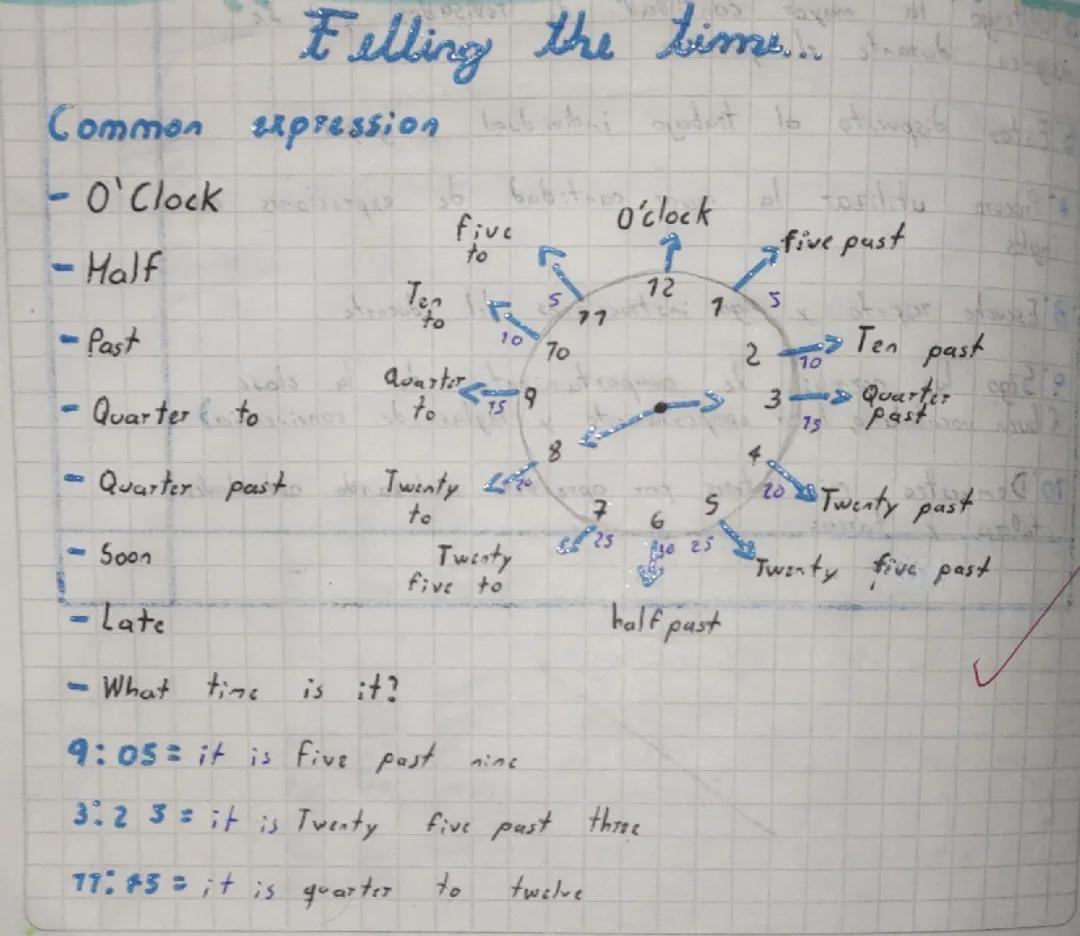 Telling the time...
Common expression
- O'Clock
- Half
- Past
- Quarter to
- Quarter past
- Soon
- Late
O'clock
12
five past
1
5
Ten past
2
10
Quarter
past
3
15
Twenty past
4
20
Twenty five past
5
25
half past
6
30
Twenty
five to
7
25
Twenty
to
8
20
Quarter
to
9
15
Ten
to
10
10
five
to
11
5
- What time is it?
9:05 = it is five past nine
3:25 = it is Twenty five past three
11:45 = it is quarter to twelve